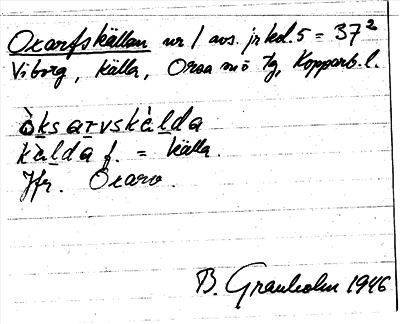 Oxarfskällan nr 1 avs. jrkd. 5 = 37²
Viborg, källa, Orsa sn, Kopparb. l.
òksarvskä̀lda
kä̀lda f. = källa.
Jfr. Oxarv.
B. Granholm 1946